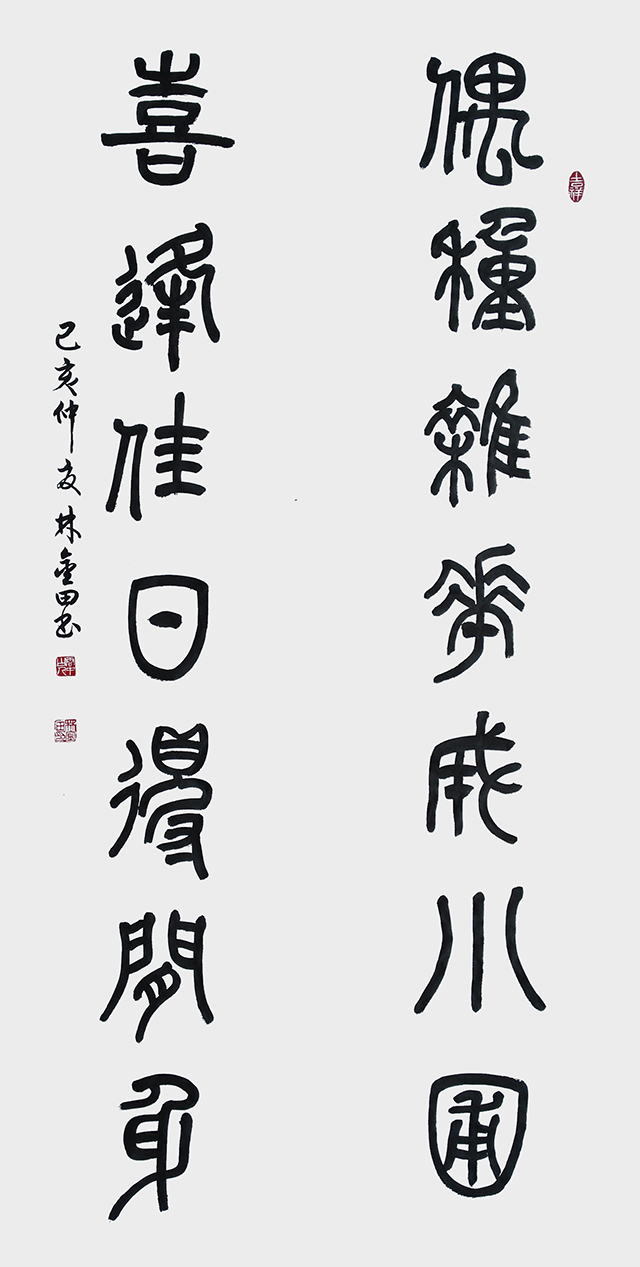 偶種雜花成小圃
喜逢佳日得閒身
己亥仲夏林金田书